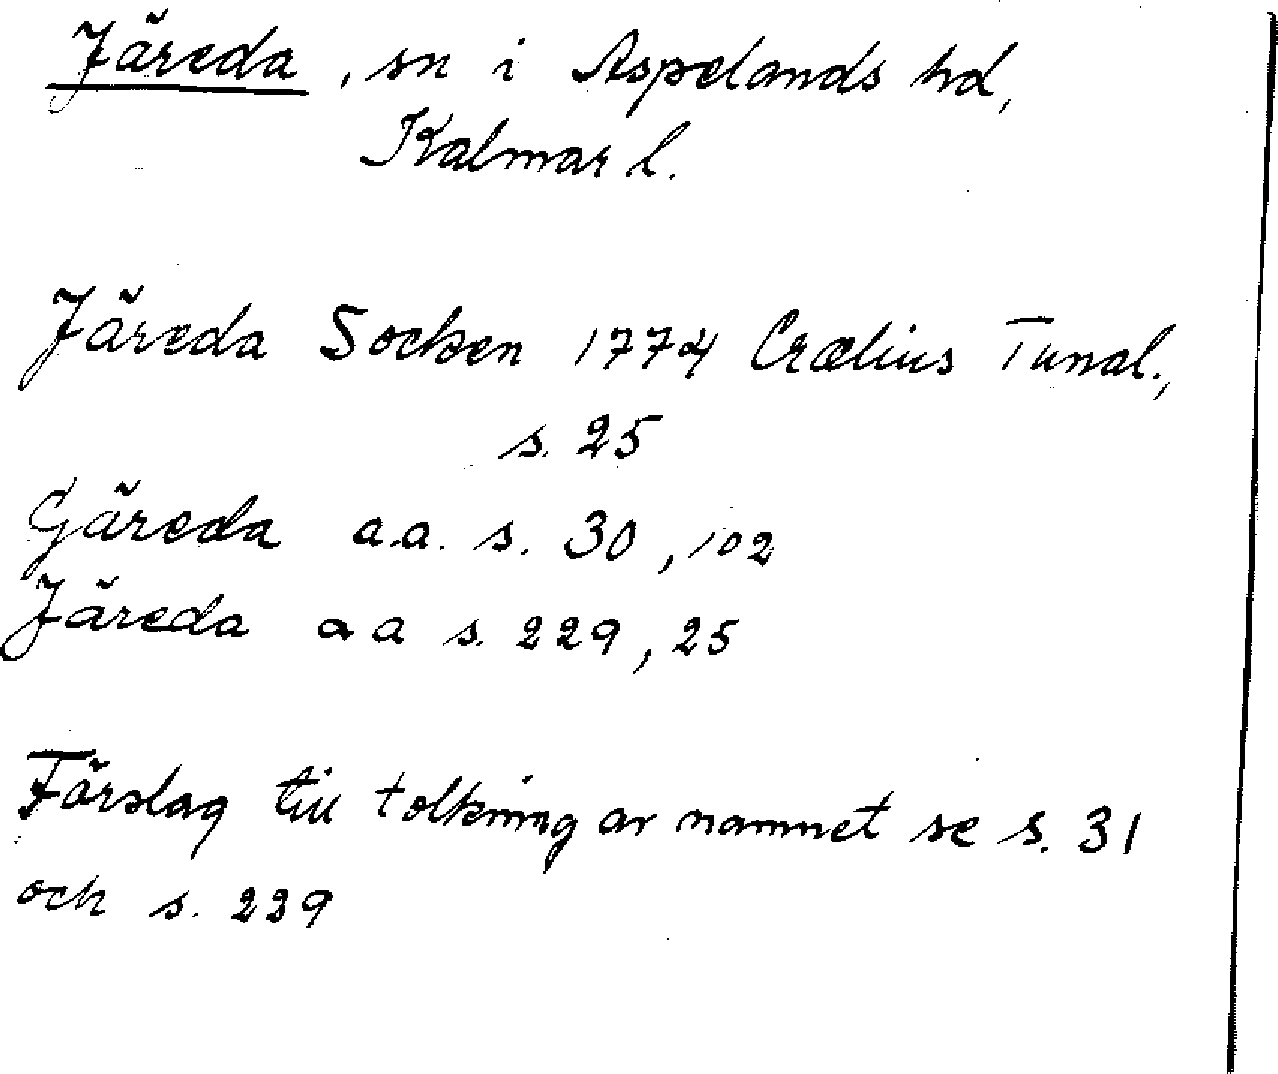 Järeda, sn i Aspelands hd,
Kalmar l.
Järeda Socken 1774 Crælius Tunal.,
s. 25
Gäreda a.a. s. 30, 102
Järeda a a s. 229, 25
Förslag till tolkning av namnet se s. 31
och s. 239